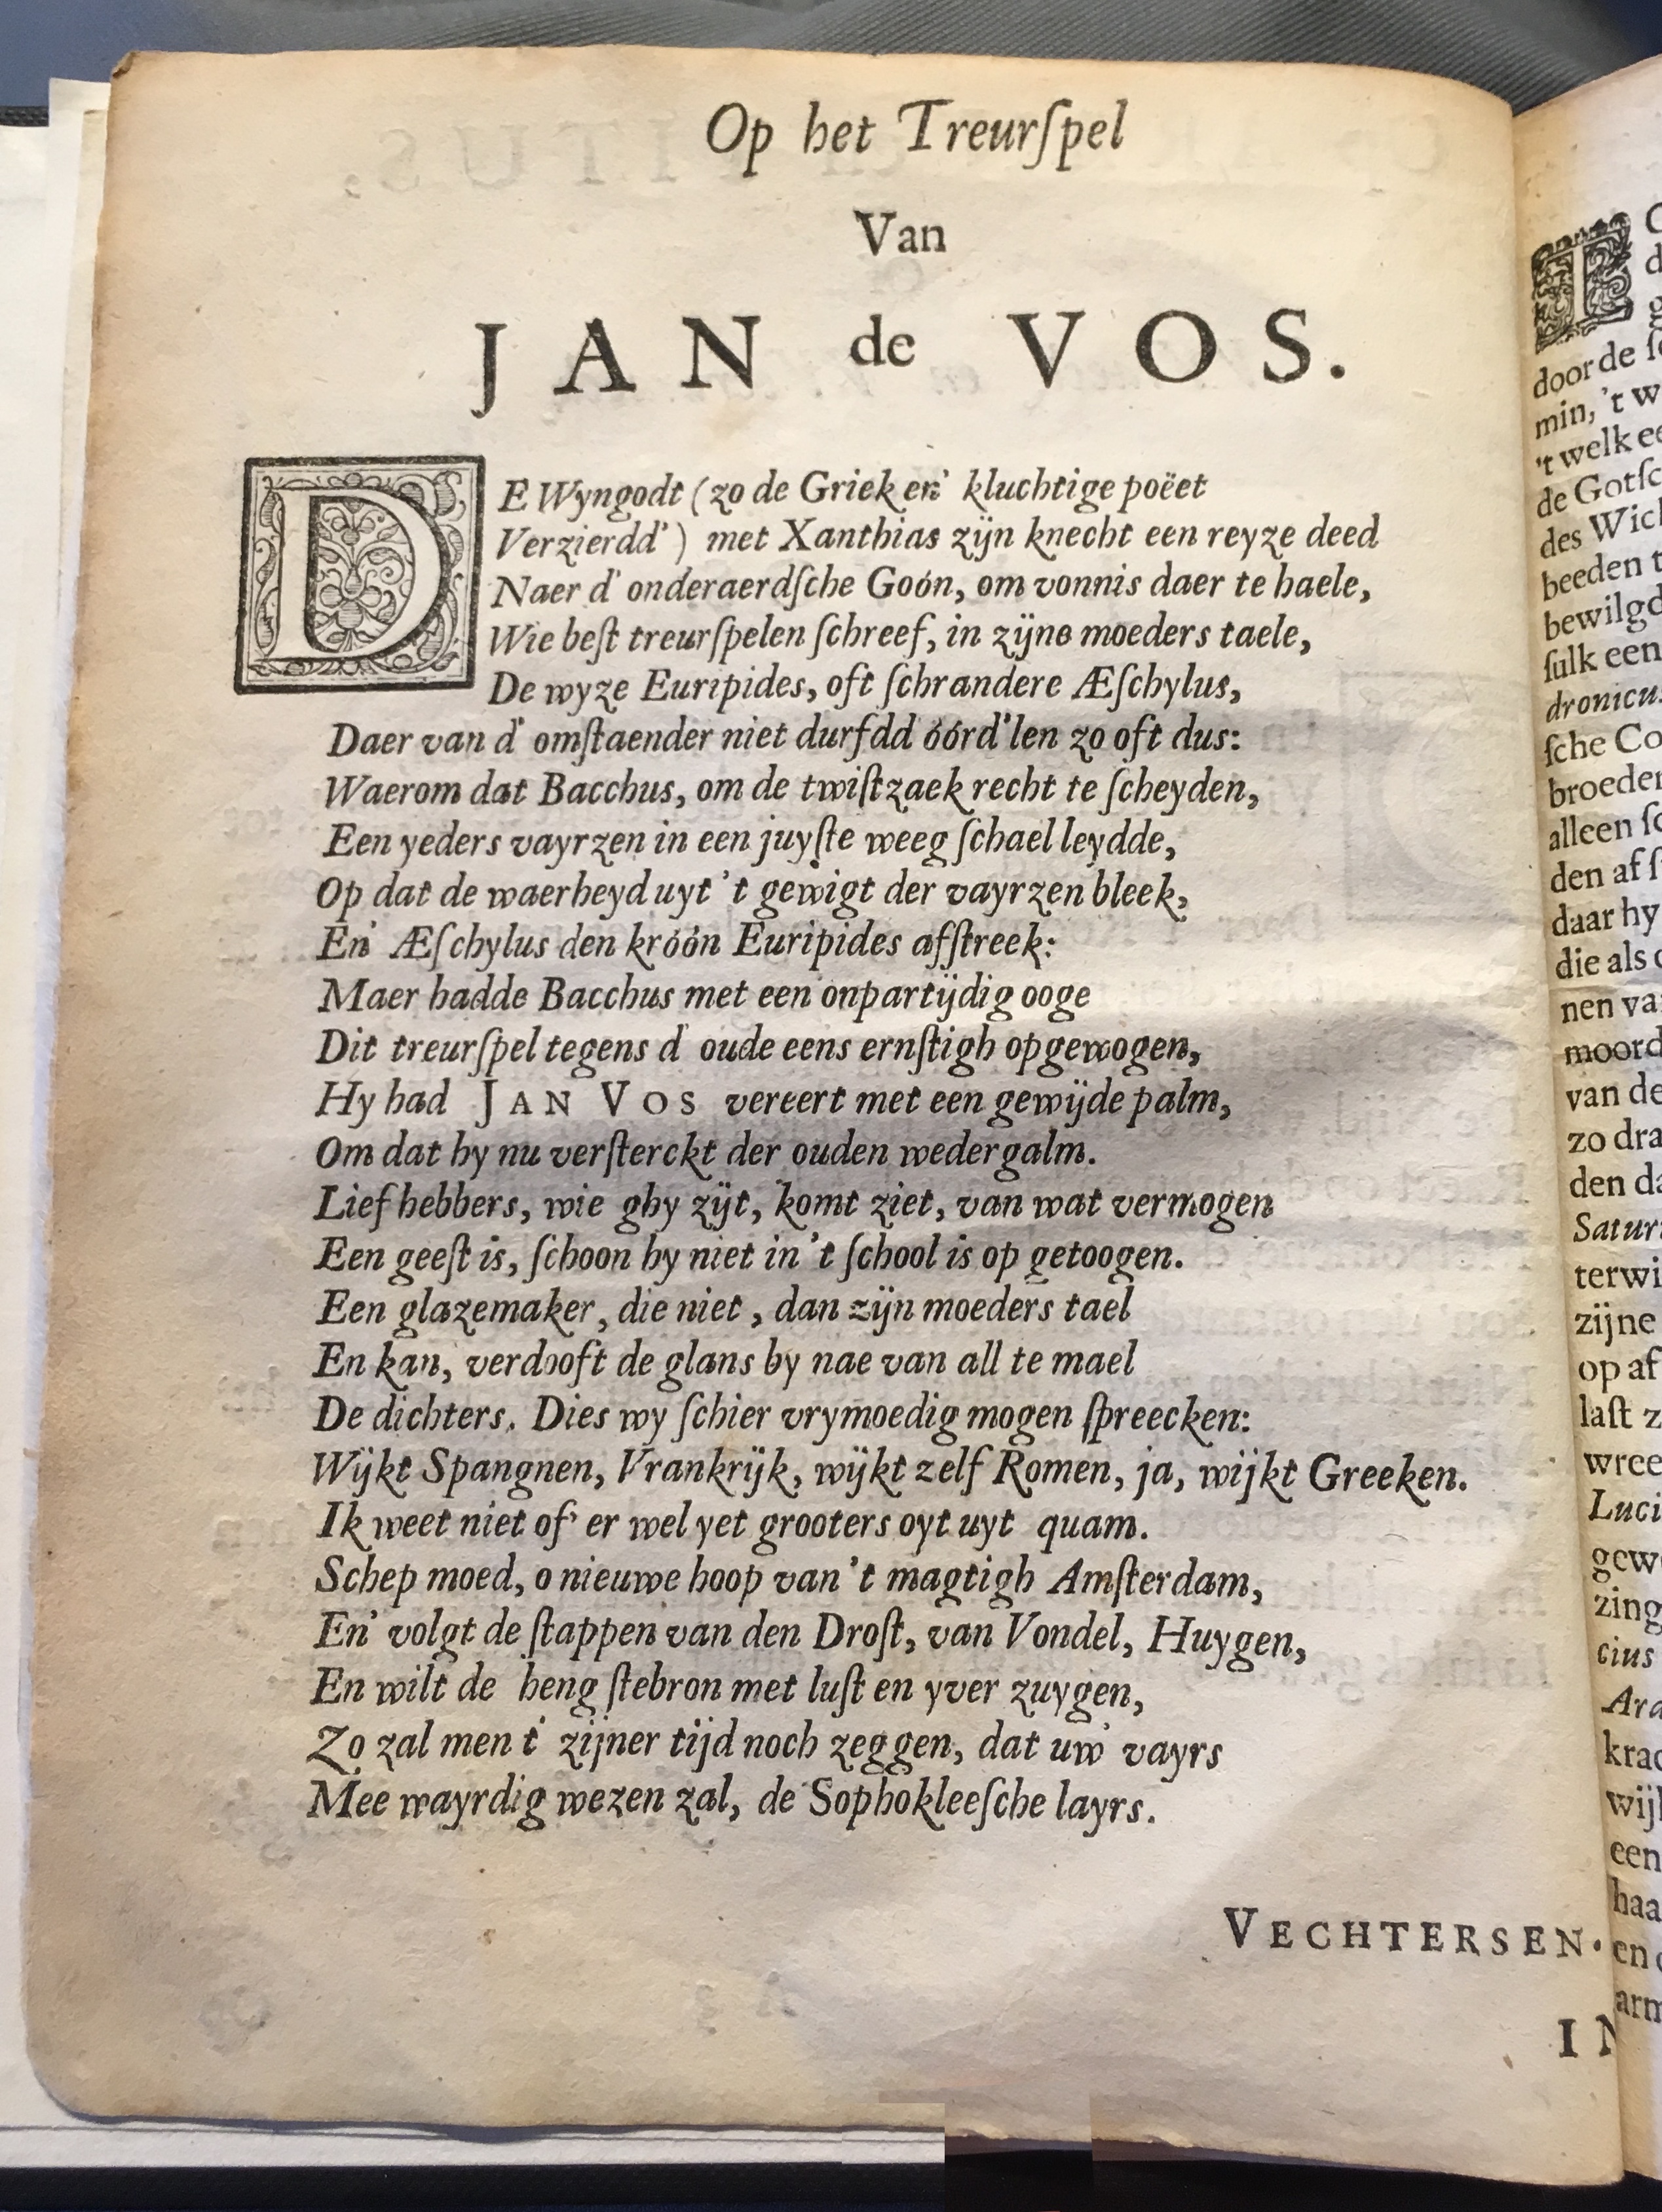 Op het Treurſpel
Van
JAN de VOS.
DE Wyngodt (zo de Grieken' kluchtige poëet
Verzierdd') met Xanthias zijn knecht een reyze deed
Naer d' onderaerdſche Goón, om vonnis daer te haele,
Wie beſt treurſpelen ſchreef, in zijne moeders taele,
De wyze Euripides, oft ſchrandere Æſchylus,
Daer van d' omſtaender niet durfdd óórd'len zo oft dus:
Waerom dat Bacchus, om de twiſtzaek recht te ſcheyden,
Een yeders vayrzen in een juyſte weeg ſchael leydde,
Op dat de waerheyd uyt 't gewigt der vayrzen bleek,
En' Æſchylus den króón Euripides afſtreek:
Maer hadde Bacchus met een onpartijdig ooge
Dit treurſpel tegens d' oude eens ernſtigh opgewogen,
Hy had JAN VOS vereert met een gewijde palm,
Om dat hy nu verſterckt der ouden wedergalm.
Liefhebbers, wie ghy zijt, komt ziet, van wat vermogen
Een geeſt is, ſchoon hy niet in 't ſchool is op getoogen.
Een glazemaker, die niet, dan zijn moeders tael
En kan, verdooft de glans by nae van all te mael
De dichters. Dies wy ſchier vrymoedig mogen ſpreecken:
Wijkt Spangnen, Vrankrijk, wijkt zelf Romen, ja, wijkt Greeken.
Ik weet niet of' er wel yet grooters oyt uyt quam.
Schep moed, o nieuwe hoop van 't magtigh Amſterdam,
En' volgt de ſtappen van den Droſt, van Vondel, Huygen,
En wilt de hengſtebron met luſt en yver zuygen,
Zo zal men t' zijner tijd noch zeggen, dat uw' vayrs
Mee wayrdig wezen zal, de Sophokleeſche layrs.
VECHTERSEN.
IN
door de
min, 't w
't welk
de
des
beeden
ſulk een
dronicus
ſche
broeder
alleen
den af
daar hy
die als
nen
moord
van de
zo
den
zijne
op af
laſt
een